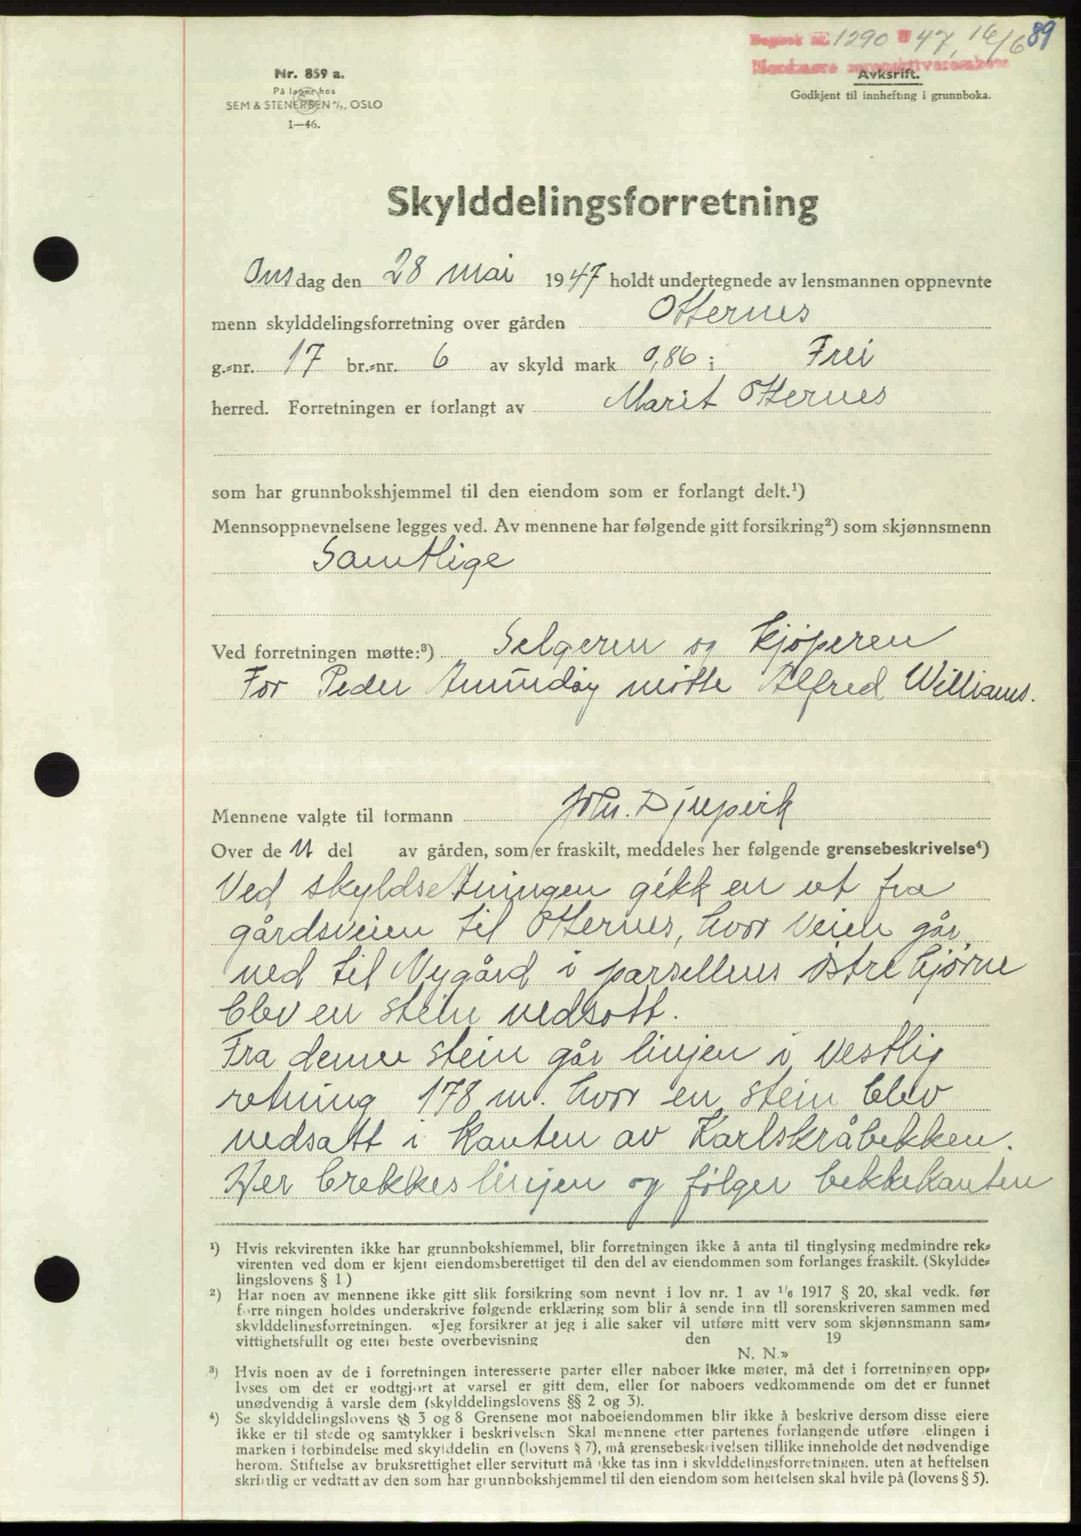 Dagbok nr. 1290 47, 16/6 89
Nordmøre sorenskriverembete
Avksrift.
Godkjent til innhefting i grunnboka.
Nr. 859 a.
På lager hos
SEM & STENERSEN A/S, OSLO
1—46.
Skylddelingsforretning
Onsdag den 28 mai 1947 holdt undertegnede av lensmannen oppnevnte
menn skylddelingsforretning over gården Otternes
g.-nr. 17 br.-nr. 6 av skyld mark 0,86 i Frei
herred. Forretningen er forlangt av Marit Otternes
som har grunnbokshjemmel til den eiendom som er forlangt delt.¹)
Mennsoppnevnelsene legges ved. Av mennene har følgende gitt forsikring²) som skjønnsmenn
Samtlige
Ved forretningen møtte:³) Selgeren og kjøperen
For Peder møtte Alfred Williams.
Mennene valgte til formann Joh. Djupvik
Over de n del av gården, som er fraskilt, meddeles her følgende grensebeskrivelse⁴)
Ved skyldsetningen gikk en ut fra
gårdsveien til Otternes, hvor veien går
ned til Nygård i parsellens østre hjørne
blev en stein nedsatt.
Fra denne stein går linjen i vestlig
retning 178 m. hvor en stein blev
nedsatt i kanten av Karlskråbekken.
Her brekkes linjen og følger bekkekanten
¹) Hvis rekvirenten ikke har grunnbokshjemmel, blir forretningen ikke å anta til tinglysing medmindre rek-
virenten ved dom er kjent eiendomsberettiget til den del av eiendommen som forlanges fraskilt. (Skyldde-
lingslovens § 1)
²) Har noen av mennene ikke gitt slik forsikring som nevnt i lov nr. 1 av 1/6 1917 § 20, skal vedk. før
forretningen holdes underskrive følgende erklæring som blir å sende inn til sorenskriveren sammen med
skylddelingsforretningen. «Jeg forsikrer at jeg i alle saker vil utføre mitt verv som skjønnsmann sam-
vittighetsfullt og etter beste overbevisning den 19
N. N.»
³) Hvis noen av de i forretningen interesserte parter eller naboer ikke møter, må det i forretningen opp-
lyses om det er godtgjort at varsel er gitt dem, eller for naboers vedkommende om det er funnet
unødvendig å varsle dem (skylddelingslovens §§ 2 og 3).
⁴) Se skylddelingslovens §§ 3 og 8 Grensene mot naboeiendommen blir ikke å beskrive dersom disse eiere
ikke er til stede og samtykker i beskrivelsen Skal mennene etter partenes forlangende utføre delingen i
marken i forbindelse med skylddelingen (lovens § 7), må grensebeskrivelsen tillike inneholde det nødvendige
herom. Stiftelse av bruksrettighet eller servitutt må ikke tas inn i skylddelingsforretningen. uten at heftelsen
skriftlig er vedtatt av den som har grunnbokshjemmel til den eiendom som heftelsen skal hvile på (lovens § 5).